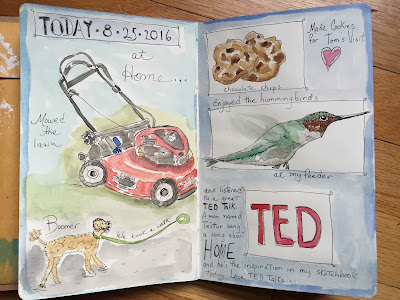 TODAY • 8 • 25 • 2016
at
Home...
Mowed
the
lawn
Boomer
We took a walk
Made Cookies
for Tom's Visit
chocolate chips
Enjoyed the hummingbirds
at my feeder
and listened
to a great
TED Talk.
A man named
Teitur sang
a song about
HOME
and he's the inspiration in my sketchbook
today. Love TED Talks...
TED